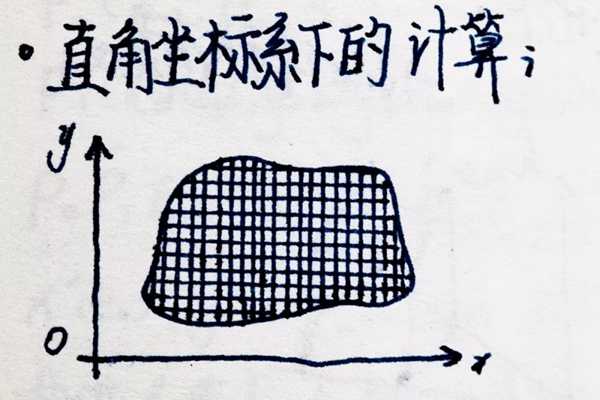 ·直角坐标系下的计算;
y
0
x